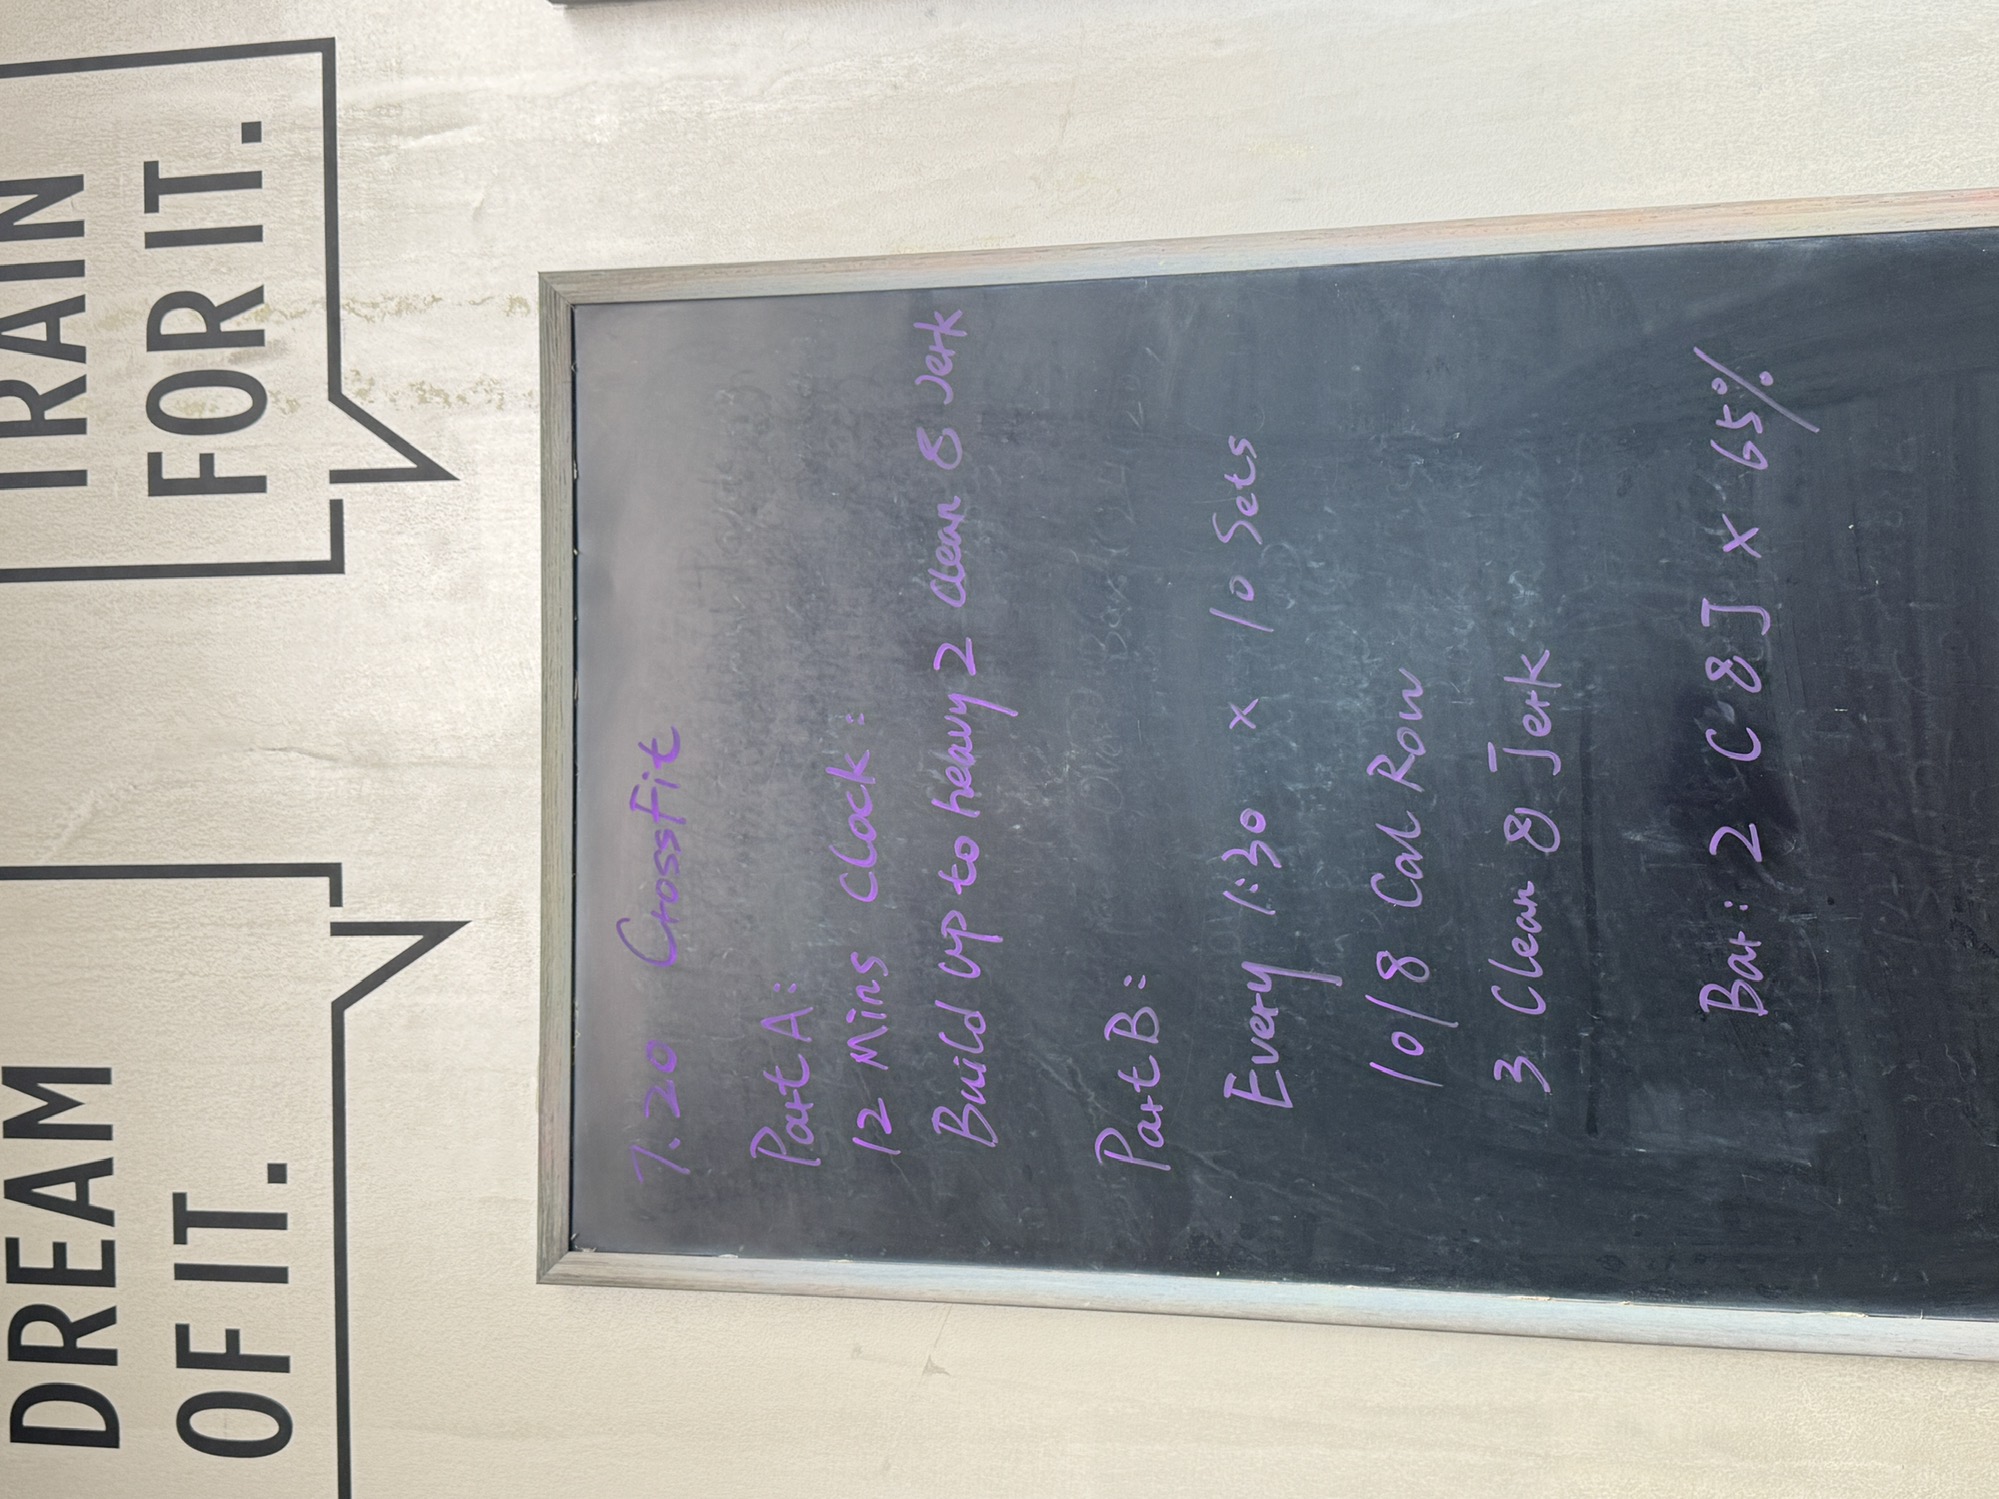 DREAM
OF IT.
TRAIN
FOR IT.
7.20 CrossFit
Part A:
12 Mins Clock:
Build up to heavy 2 Clean & Jerk
Part B:
Every 1:30 x 10 Sets
10/8 Cal Row
3 Clean & Jerk
Bar: 2 C & J x 65%